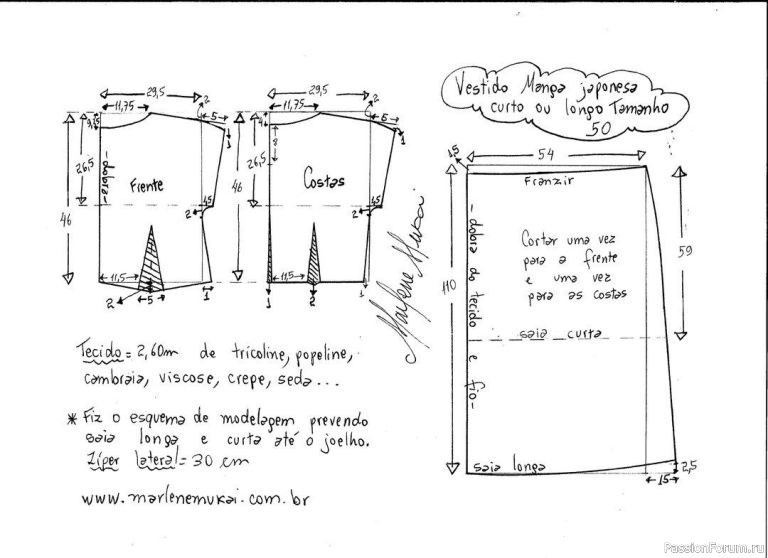 Vestido Manga japonesa
curto ou longo Tamanho
50
29,5
11,75
2
5
1
26,5
46
-dobra-
Frente
4,5
2
11,5
2
5
1
29,5
11,75
2
5
4
1
8
26,5
46
Costas
4,5
2
11,5
1
2
1
Marlene Mukai
1,5
54
Franzir
- dobra do tecido e fio-
Cortar uma vez
para a frente
e uma vez
para as costas
59
110
saia curta
saia longa
2,5
15
Tecido = 2,60m de tricoline, popeline,
cambraia, viscose, crepe, seda...
* Fiz o esquema de modelagem prevendo
saia longa e curta até o joelho.
Zíper lateral = 30 cm
www.marlenemukai.com.br
PassionForum.ru